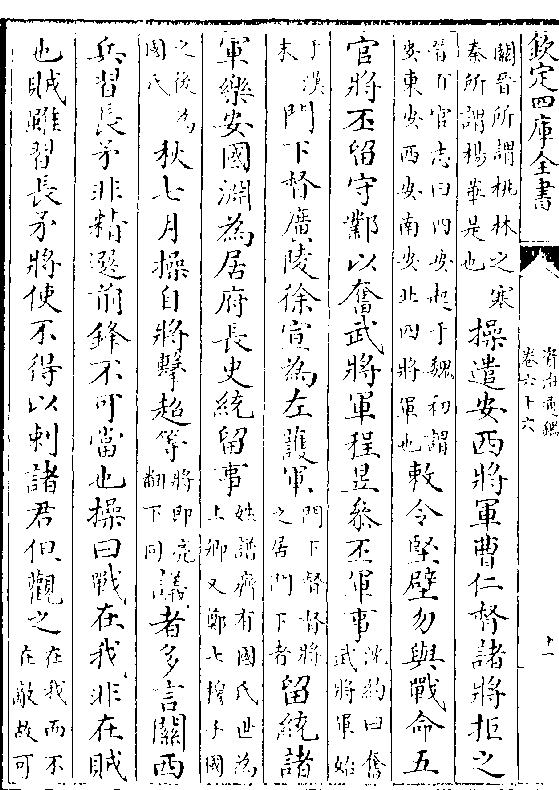 欽定四庫全書
資治通鑑
卷六十六
十一
關晉所謂桃林之塞
秦所謂楊華是也
操遣安西將軍曹仁督諸將拒之
晉百官志曰四安起于魏初謂
安東安西安南安北四將軍也
敕令堅壁勿與戰命五
官將丕留守鄴以奮武將軍程昱參丕軍事
沈約曰奮
武將軍始
于漢
末
門下督廣陵徐宣為左護軍
門下督督將
之居門下者
留統諸
軍樂安國淵為居府長史統留事
姓譜齊有國氏世為
上卿又鄭七穆子國
之後為
國氏
秋七月操自將擊超等
將即亮
翻下同
議者多言關西
兵習長矛非精選前鋒不可當也操曰戰在我非在賊
也賊雖習長矛將使不得以刺諸君但觀之
在我而不
在敵故可